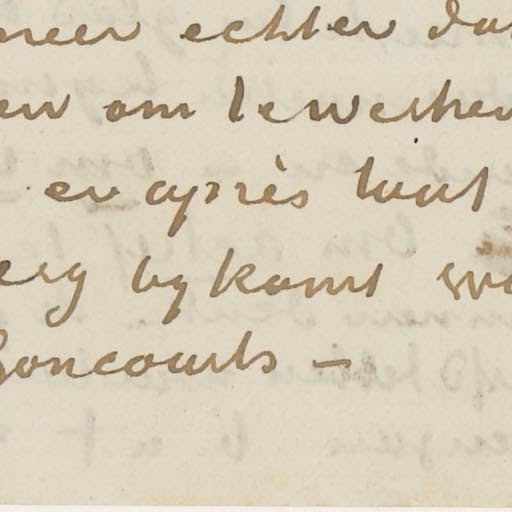 meer echter dan
en om te werken
er après tout
erg by komt wa
Goncourts –